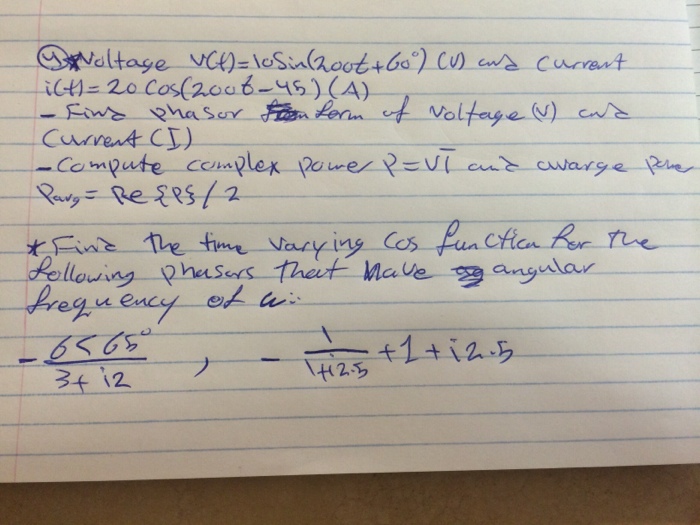 4) * Voltage V(t)=10Sin(200t+60°) (V) and Current
i(t)=20 Cos(200t-45) (A)
- Find phasor form of Voltage (V) and
Current (I)
- Compute complex power P=VI̅ and avarge power
Pavg = Re {P} / 2
* Find the time varying Cos function for the
following phasors that have angular
frequency of ω:
- 6<65° / 3+i2 , - 1 / 1+i2.5 +1+i2.5